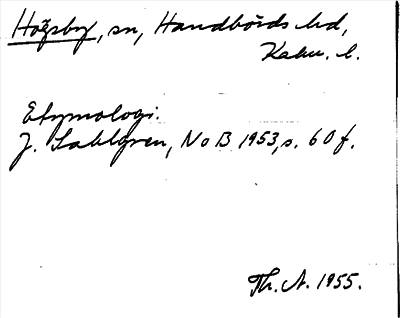 Högsby, sn, Handbörds hd,
Kalm. l.
Etymologi.
J. Sahlgren, NoB 1953, s. 60 f.
Th. A. 1955.